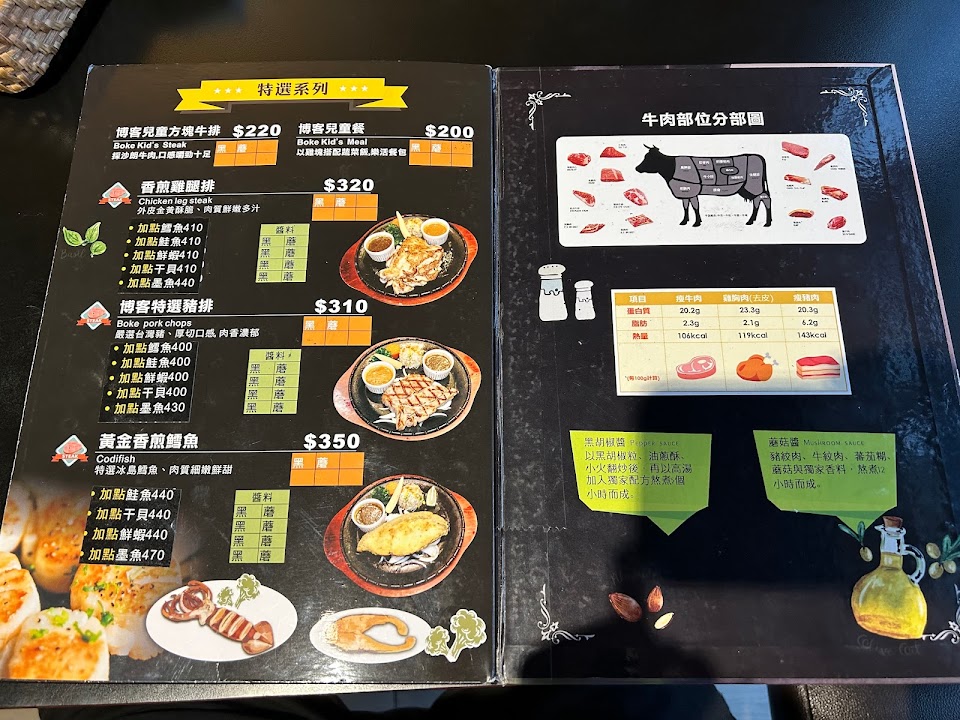 特選系列
博客兒童方塊牛排 $220
Boke Kid's Steak
採沙朗牛肉,口感嚼勁十足
黑 蘑
博客兒童餐 $200
Boke Kid's Meal
以雞塊搭配蔬菜飯,樂活餐包
黑 蘑
香煎雞腿排 $320
Chicken leg steak
外皮金黃酥脆、肉質鮮嫩多汁
黑 蘑
STEAK
• 加點鱈魚410
• 加點鮭魚410
• 加點鮮蝦410
• 加點干貝410
• 加點墨魚440
醬料
黑 蘑
黑 蘑
黑 蘑
黑 蘑
Basil
博客特選豬排 $310
Boke pork chops
嚴選台灣豬、厚切口感, 肉香濃郁
黑 蘑
STEAK
• 加點鱈魚400
• 加點鮭魚400
• 加點鮮蝦400
• 加點干貝400
• 加點墨魚430
醬料
黑 蘑
黑 蘑
黑 蘑
黑 蘑
黃金香煎鱈魚 $350
Codifish
特選冰島鱈魚、肉質細嫩鮮甜
黑 蘑
STEAK
• 加點鮭魚440
• 加點干貝440
• 加點鮮蝦440
• 加點墨魚470
醬料
黑 蘑
黑 蘑
黑 蘑
黑 蘑
牛肉部位分部圖
項目 瘦牛肉 雞胸肉(去皮) 瘦豬肉
蛋白質 20.2g 23.3g 20.3g
脂肪 2.3g 2.1g 6.2g
熱量 106kcal 119kcal 143kcal
*(每100g計算)
黑胡椒醬 Pepper sauce
以黑胡椒粒、油煎酥、
小火翻炒後、再以高湯
加入獨家配方熬煮2個
小時而成。
蘑菇醬 Mushroom sauce
豬絞肉、牛絞肉、蕃茄糊、
蘑菇與獨家香料，熬煮2
小時而成。